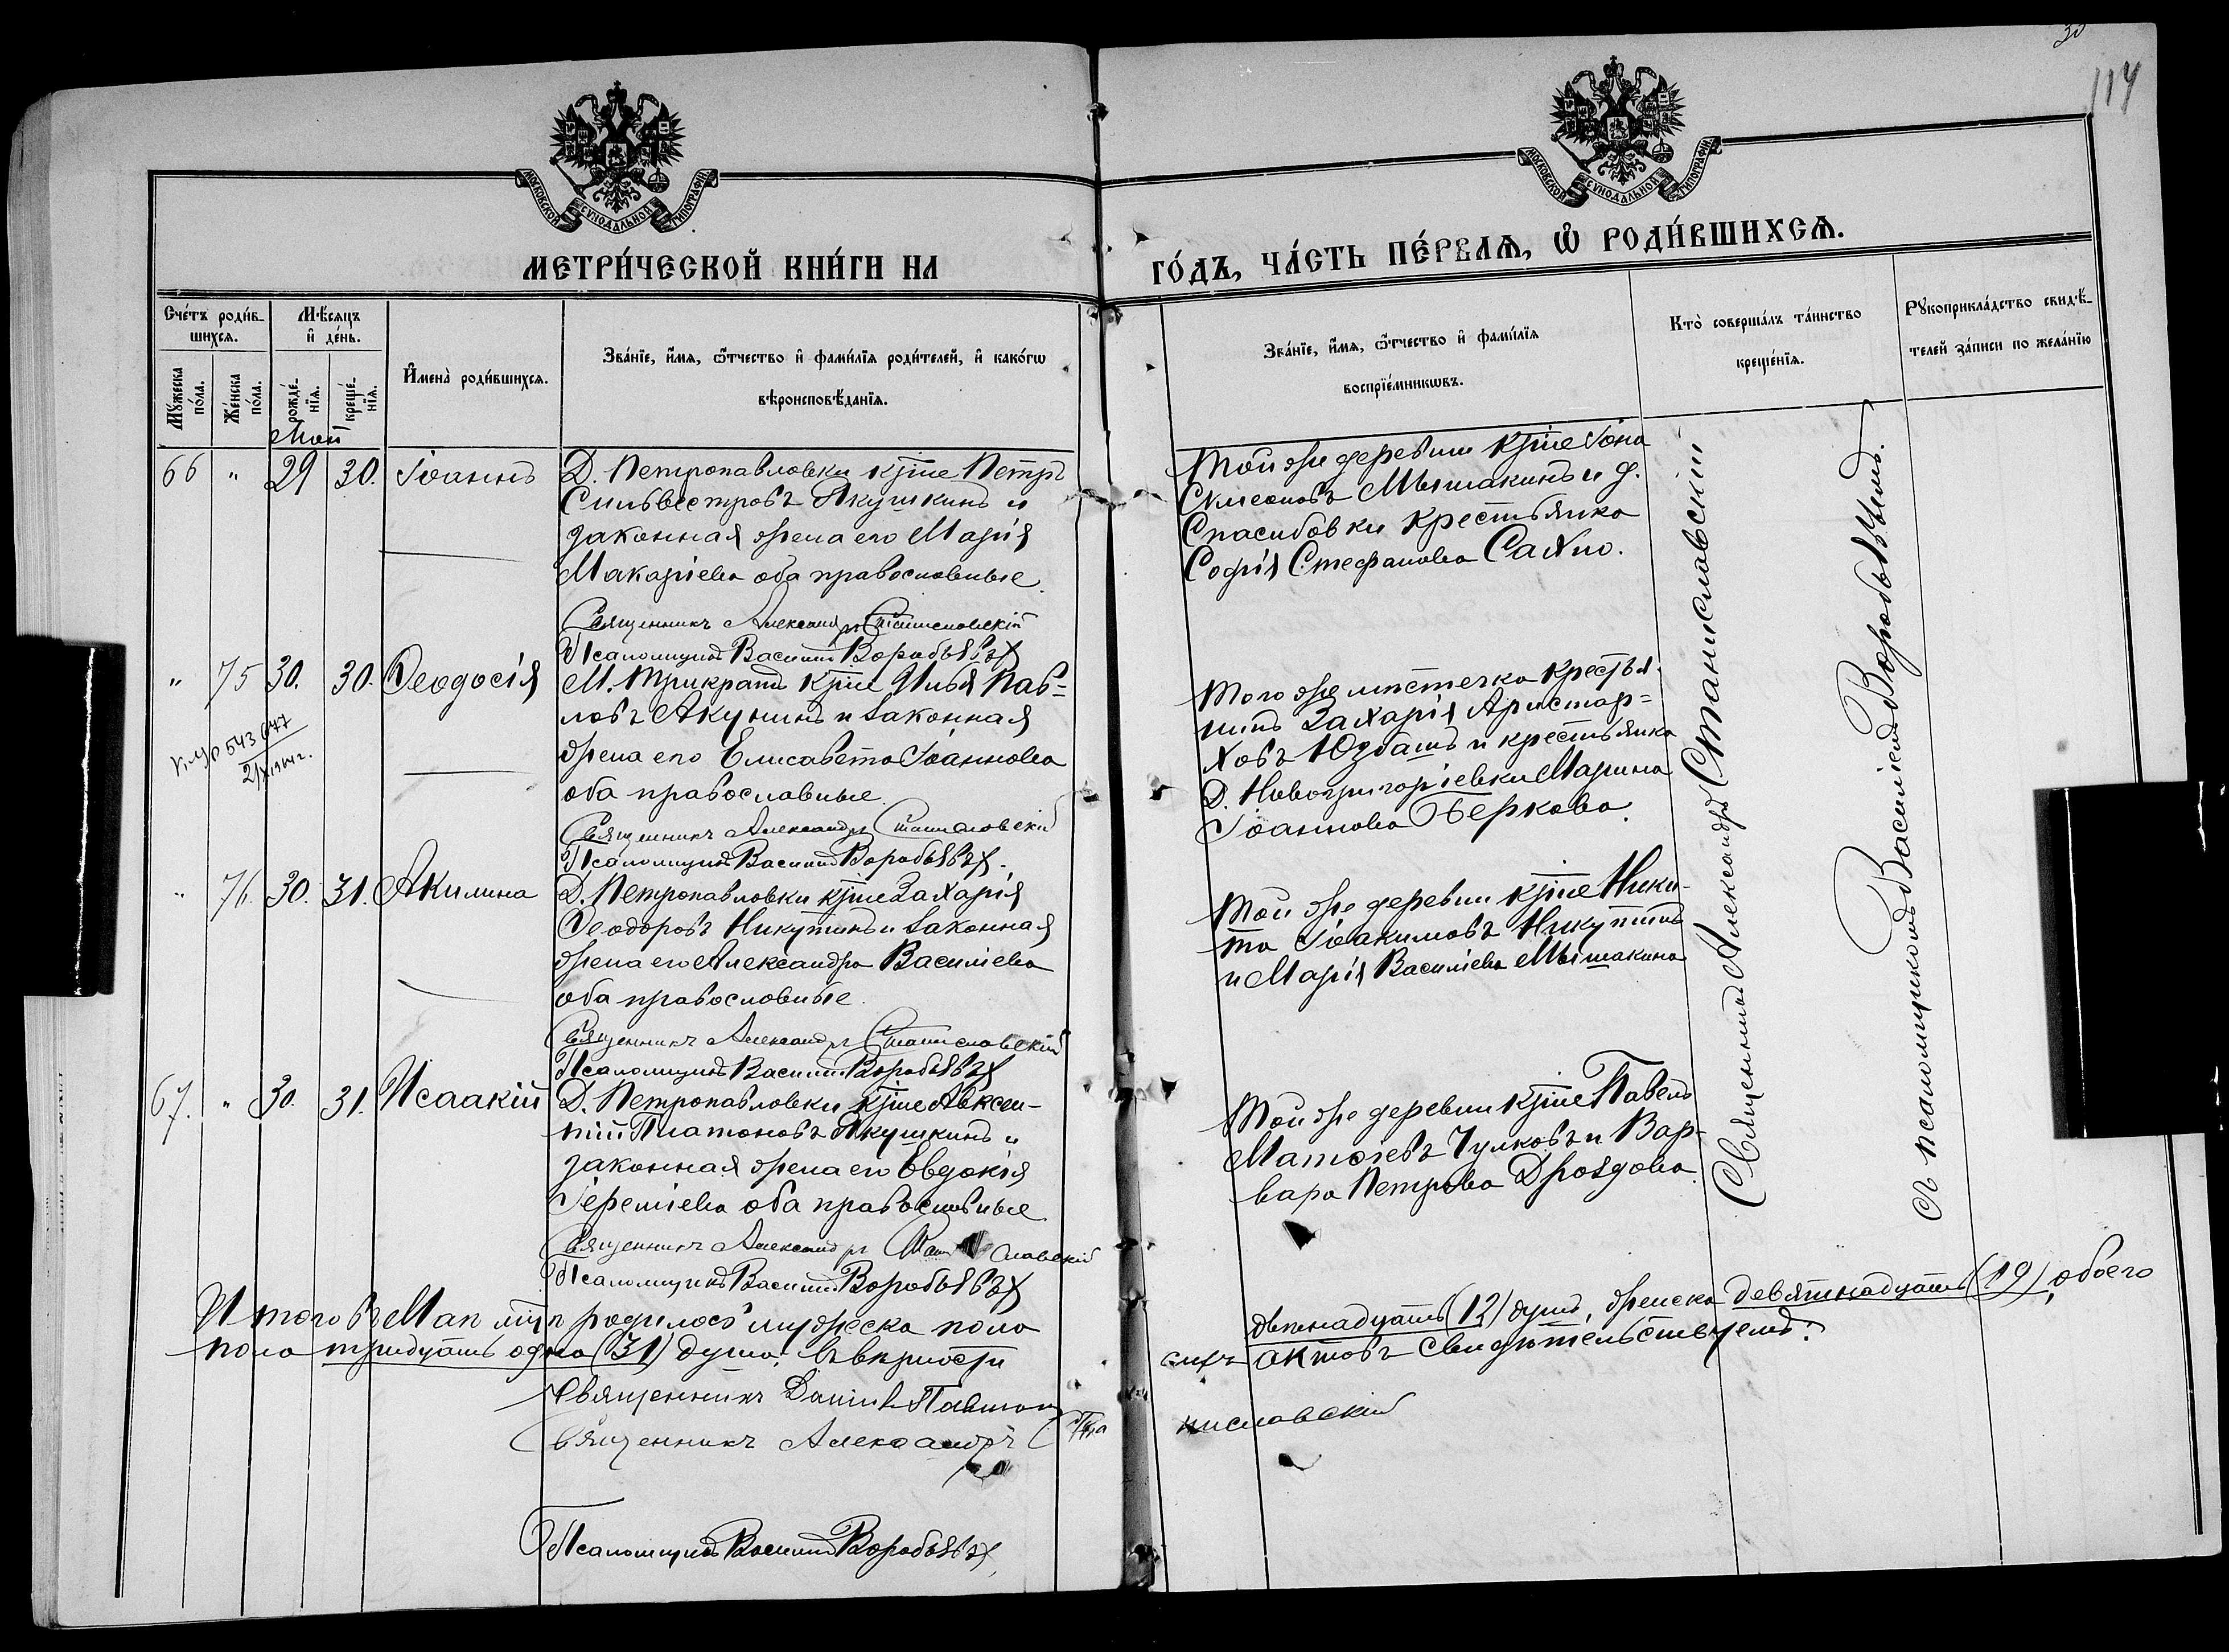 30
114
МОСКОВСКОЙ СѴНОДАЛЬНОЙ ТИПОГРАФІИ
МОСКОВСКОЙ СѴНОДАЛЬНОЙ ТИПОГРАФІИ
МЕТРИ́ЧЕСКОЙ КНИ́ГИ НА
ГО́ДЪ, ЧА́СТЬ ПЕ́РВАѦ, Ѡ РОДИ́ВШИХСѦ.
Сче́тъ роди́в-
шихсѧ.
Мꙋ́жеска по́ла.
Же́нска по́ла.
Мѣ́сѧцъ
и҆ де́нь.
рожде́-
нїѧ.
креще́-
нїѧ.
И҆мена̀ роди́вшихсѧ.
Зва́нїе, и҆́мѧ, ѻ҆́тчество и҆ фами́лїѧ роди́телей, и҆ како́гѡ
вѣроисповѣ́данїѧ.
Зва́нїе, и҆́мѧ, ѻ҆́тчество и҆ фами́лїѧ
воспрїе́мникѡвъ.
Кто̀ соверша́лъ та́инство
креще́нїѧ.
Рꙋкоприкла́дство свидѣ́-
телей за́писи по жела́нїю
Май
66 " 29 30. Іоаннъ
Д. Петропавловки крне Петръ
Сильвестровъ Якушкинъ и
законная жена его Марія
Макаріева оба православные.
Священникъ Александръ Станиславскій
Псаломщикъ Василій Воробьевъ
Той же деревни крне Іона
Симеоновъ Мышакинъ и д.
Спасибовки крестьянка
София Стефанова Сахно.
" 75 30. 30. Ѳеодосія
543677
2/X 1964 г.
М. Трикратъ крне Илья Пав=
ловъ Акунинъ и законная
жена его Елисавета Іоаннова
оба православные.
Священникъ Александръ Станиславскій
Псаломщикъ Василій Воробьевъ
Того же мѣстечка крестья-
нинъ Захарія Аристар=
ховъ Юзбашъ и крестьянка
Д. Новогригоріевки Марина
Іоаннова Деркова.
" 76. 30. 31. Акилина
Д. Петропавловки крне Захарія
Ѳеодоровъ Никутинъ и законная
жена его Александра Василіева
оба православные.
Священникъ Александръ Станиславскій
Псаломщикъ Василій Воробьевъ
Той же деревни крне Ники-
та Іоакимовъ Никутинъ
и Марія Василіева Мышакина
67. " 30. 31. Исаакій
Д. Петропавловки крне Авксен-
тій Платоновъ Якушкинъ и
законная жена его Евдокія
Іереміева оба православные
Священникъ Александръ Станиславскій
Псаломщикъ Василій Воробьевъ
Той же деревни крне Павелъ
Матѳіевъ Чулковъ и Вар-
вара Петрова Дроздова.
Священникъ Александръ Станиславскій
съ псаломщикомъ Василіемъ Воробьевымъ.
Итого въ Маѣ мцѣ родилось мужеска пола двѣнадцать (12) душъ, женска девятнадцать (19), обоего
пола тридцать одна (31) душа. Вѣрность сихъ актовъ свидѣтельствуемъ:
Священникъ
Священникъ Александръ Станиславскій
Псаломщикъ Василій Воробьевъ